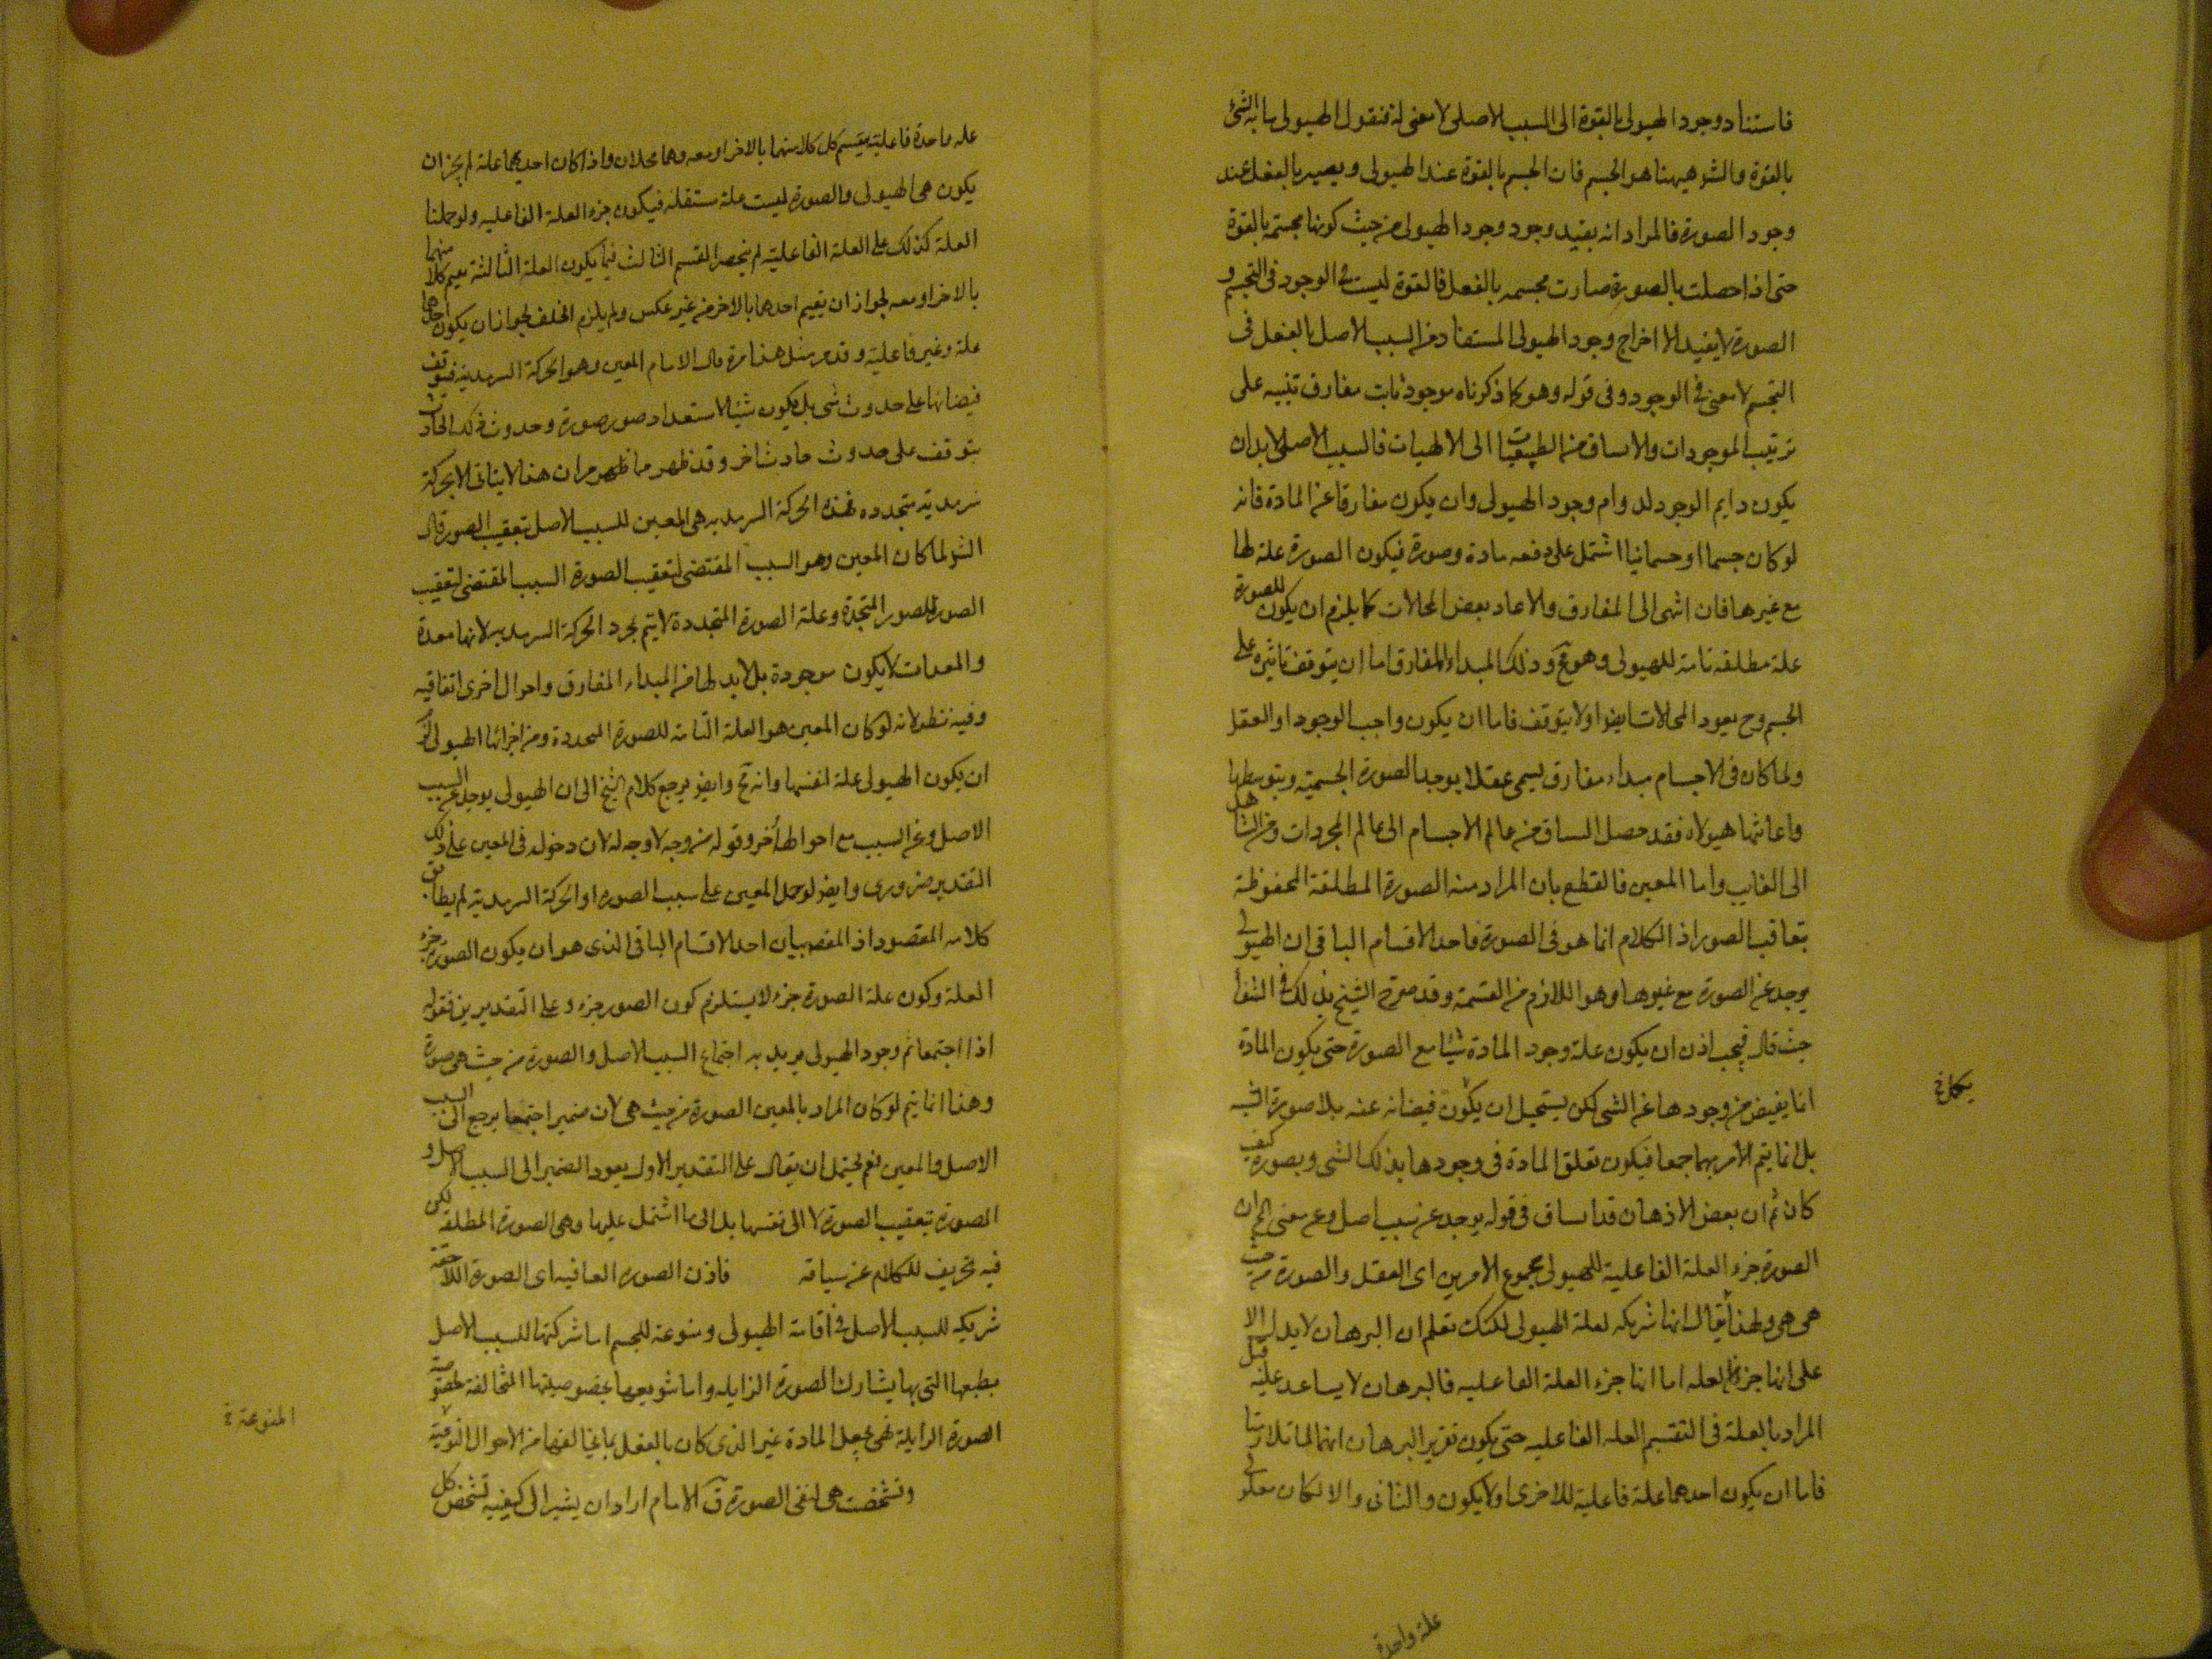 فاستناد وجود الهيولى بالقوة الى السبب الاصلى لا معنى له فنقول الهيولى ما به الشئ
بالقوة والشئ هيهنا هو الجسم فان الجسم بالقوة عند الهيولى ويصير بالفعل عند
وجود الصورة فالمراد انه يفيد وجود وجود الهيولى من حيث كونها مجسمة بالقوة
حتى اذا حصلت بالصورة صارت مجسمه بالفعل فالقوة ليست فى الوجود فى التجسم و
الصورة لا يفيد الا اخراج وجود الهيولى المستفاد من السبب الاصل بالفعل فى
التجسم لا معنى فى الوجود وفى قوله وهو كما ذكرناه موجود ثابت مفارق تنبيه على
ترتيب الموجودات والانساق من الطبيعيات الى الالهيات فالسبب الاصلى لا بد ان
يكون دايم الوجود لدوام وجود الهيولى وان يكون مفارقا عن المادة فانه
لو كان جسما او جسمانيا اشتمل على دفعه مادة وصورة فيكون الصورة علة لها
مع غيرها فان انتهى الى المفارق والا عاد بعض المحالات كما يلزم ان يكون للصورة
علة مطلقه تامة للهيولى وهو مح وذلك المبداء المفارق اما ان يتوقف تاثيره على
الجسم وح يعود المحالات ايضا او لا يتوقف فاما ان يكون واجب الوجود او العقل
ولما كان فى الاجسام مبداء مفارق يسمى عقلا يوجد الصورة الجسمية وبتوسطها
واعانتها هيولاه فقد حصل المساق من عالم الاجسام الى عالم المجردات ومن الشاهد
الى الغايب واما المعين فالقطع بان المراد منه الصورة المطلقة المحفوظة
بتعاقب الصور اذ الكلام انما هو فى الصورة فاحد الاقسام الباقى ان الهيولى
يوجد عن الصورة مع غيرها وهو اللازم من القسمة وقد صرح الشيخ بذلك فى الشفا
حيث قال فيجب اذن ان يكون علة وجود المادة شيئا مع الصورة حتى يكون المادة
انما يفيض من وجودها عن الشى لكن يستحيل ان يكون فيضانه عنه بلا صورة البته
بل انما يتم الامر بهما جمعا فيكون تعلق المادة فى وجودها بذلك الشى وبصورة كيف
كان ثم ان بعض الاذهان قد انساق فى قوله يوجد عن سبب اصل وعن معنى الى ان
الصورة جزء العلة الفاعلية للهيولى مجموع الامرين اى العقل والصورة من حيث
هى هى ولهذا يقال انها شريكه لعلة الهيولى لكنك تعلم ان البرهان لا يدل الا
على انها جزء العله اما انها جزء العلة الفاعليه فالبرهان لا يساعد عليه قيل
المراد بالعلة فى التقسيم العله الفاعليه حتى يكون تقرير البرهان انهما لما تلازما
فاما ان يكون احدهما علة فاعلية للاخرى او لا يكون والثانى والا لكان معلولى
علة واحدة
علة واحدة فاعلية يقيم كل كلا منهما بالاخر او معه وهما محلان واذا كان احديهما علة لم يجز ان
يكون هى الهيولى والصورة ليست علة مستقلة فيكون جزء العلة الفاعليه ولو حملنا
العلة كذلك على العلة الفاعلية لم ينحصر القسم الثالث فيما يكون العلة الثالثة يقيم كلا منهما
بالاخر او معه لجواز ان يقيم احدهما بالاخر من غير عكس ولم يلزم الخلف لجواز ان يكون احدهما
علة وغير فاعلية وقد مر مثل هذا مرة قال الامام المعين وهو الحركة السرمدية فيتوقف
فيضانها على حدوث شى بل يكون شيئا لاستعداد صور صورة وحدوث ذلك الحادث
يتوقف على حدوث حادث اخر وقد ظهر مما ظهر مر ان هذا لا يتاتى الا بحركة
سرمدية متجدده فهذه الحركة السرمديه هى المعين للسبب الاصل بتعقيب الصور قال
الش لما كان المعين وهو السبب المقتضى لتعقيب الصورة السبب المقتضى لتعقيب
الصور للصور المتجددة وعلة الصورة المتجددة لا يتم بمجرد الحركة السرمديه لانها معدة
والمعدات لا يكون موجودة بل لا بد لها من المبداء المفارق واحوال اخرى اتفاقيه
وفيه نظر لانه لو كان المعين هو العلة التامة للصورة المتجددة ومن اجزائها الهيولى لزم
ان يكون الهيولى علة لنفسها وانه مح وايضا يرجع كلام الشيخ الى ان الهيولى يوجد عن السبب
الاصل وعن السبب مع احوالها أخر وقوله من وجه لا وجه له لان دخوله فى المعين على ذلك
التقدير ضرورى وايضا لو حمل المعين على سبب الصوره او الحركة السرمدية لم يطابق
كلامه المقصود اذ المقصود بيان احد الاقسام الباقى الذى هو ان يكون الصورة جزء
العلة وكون علة الصورة جزء لا يستلزم كون الصور جزء وعلى التقديرين فقوله
اذا اجتمعا تم وجود الهيولى يريد به اجتماع السبب الاصل والصورة من حيث هى صورة
وهذا انما يتم لو كان المراد بالمعين الصورة من حيث هى لان ضمير اجتمعا يرجع الى السبب
الاصل والمعين نعم يحتمل ان يقال على التقدير الاول يعود الضمير الى السبب الاصل و
الصورة بتعقيب الصورة لا الى نفسها بل الى ما اشتمل عليها وهى الصورة المطلقه لكن
فيه تحريف للكلام عن سياقه فاذن الصوره العاقبه اى الصورة اللاحقة
شريكه للسبب الاصل فى اقامة الهيولى ومنوعة للجسم اما شركتها للسبب الاصل
بطبعها التى بها يشارك الصورة الزايله واما تنويعها بخصوصيتها المخالفة لخصوصية
الصورة الزايلة فهى يجعل المادة غير الذى كان بالفعل بما يخالفها من الاحوال النوعية
وتشخصت هى ايضا الصورة ق الامام اراد ان يشير الى كيفية تشخص كل
المنوعة خ